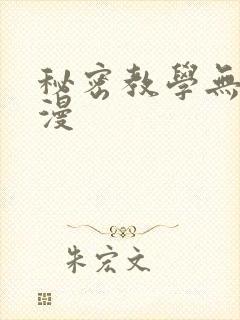 秘密教學無
漫
朱宏文